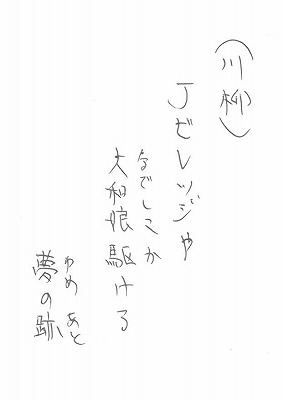 (川柳)
Jビレッジや
なでしこ か
大和娘駆ける
ゆめ あと
夢の跡